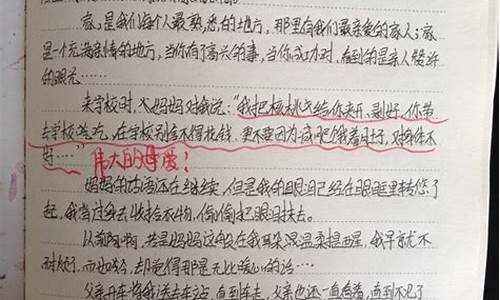 家,是我们每个人最熟悉的地方,那里有我们最亲爱的家人;家
是一个充满亲情的地方,当你有了高兴的事,当你成功时,看到的是亲人赞许
的眼光……
来学校时,妈妈对我说:“我把核桃给你夹开,剥好,你带
去学校吃,在学校别舍不得花钱,更不要因为减肥饿着肚子,对身体不
好……” 伟大的母爱!
妈妈的话还在继续,但是我的眼泪已经在眼眶里转悠了
起,我借过去收拾衣物,偷偷把眼泪抹去。
以前啊,若是妈妈这般在我耳朵温柔提醒,我早就不
耐烦了,而如今,却觉得那是无比暖心的话……
父亲开车将我送去车站,直到车走,父亲也还一直看着,直到不见了